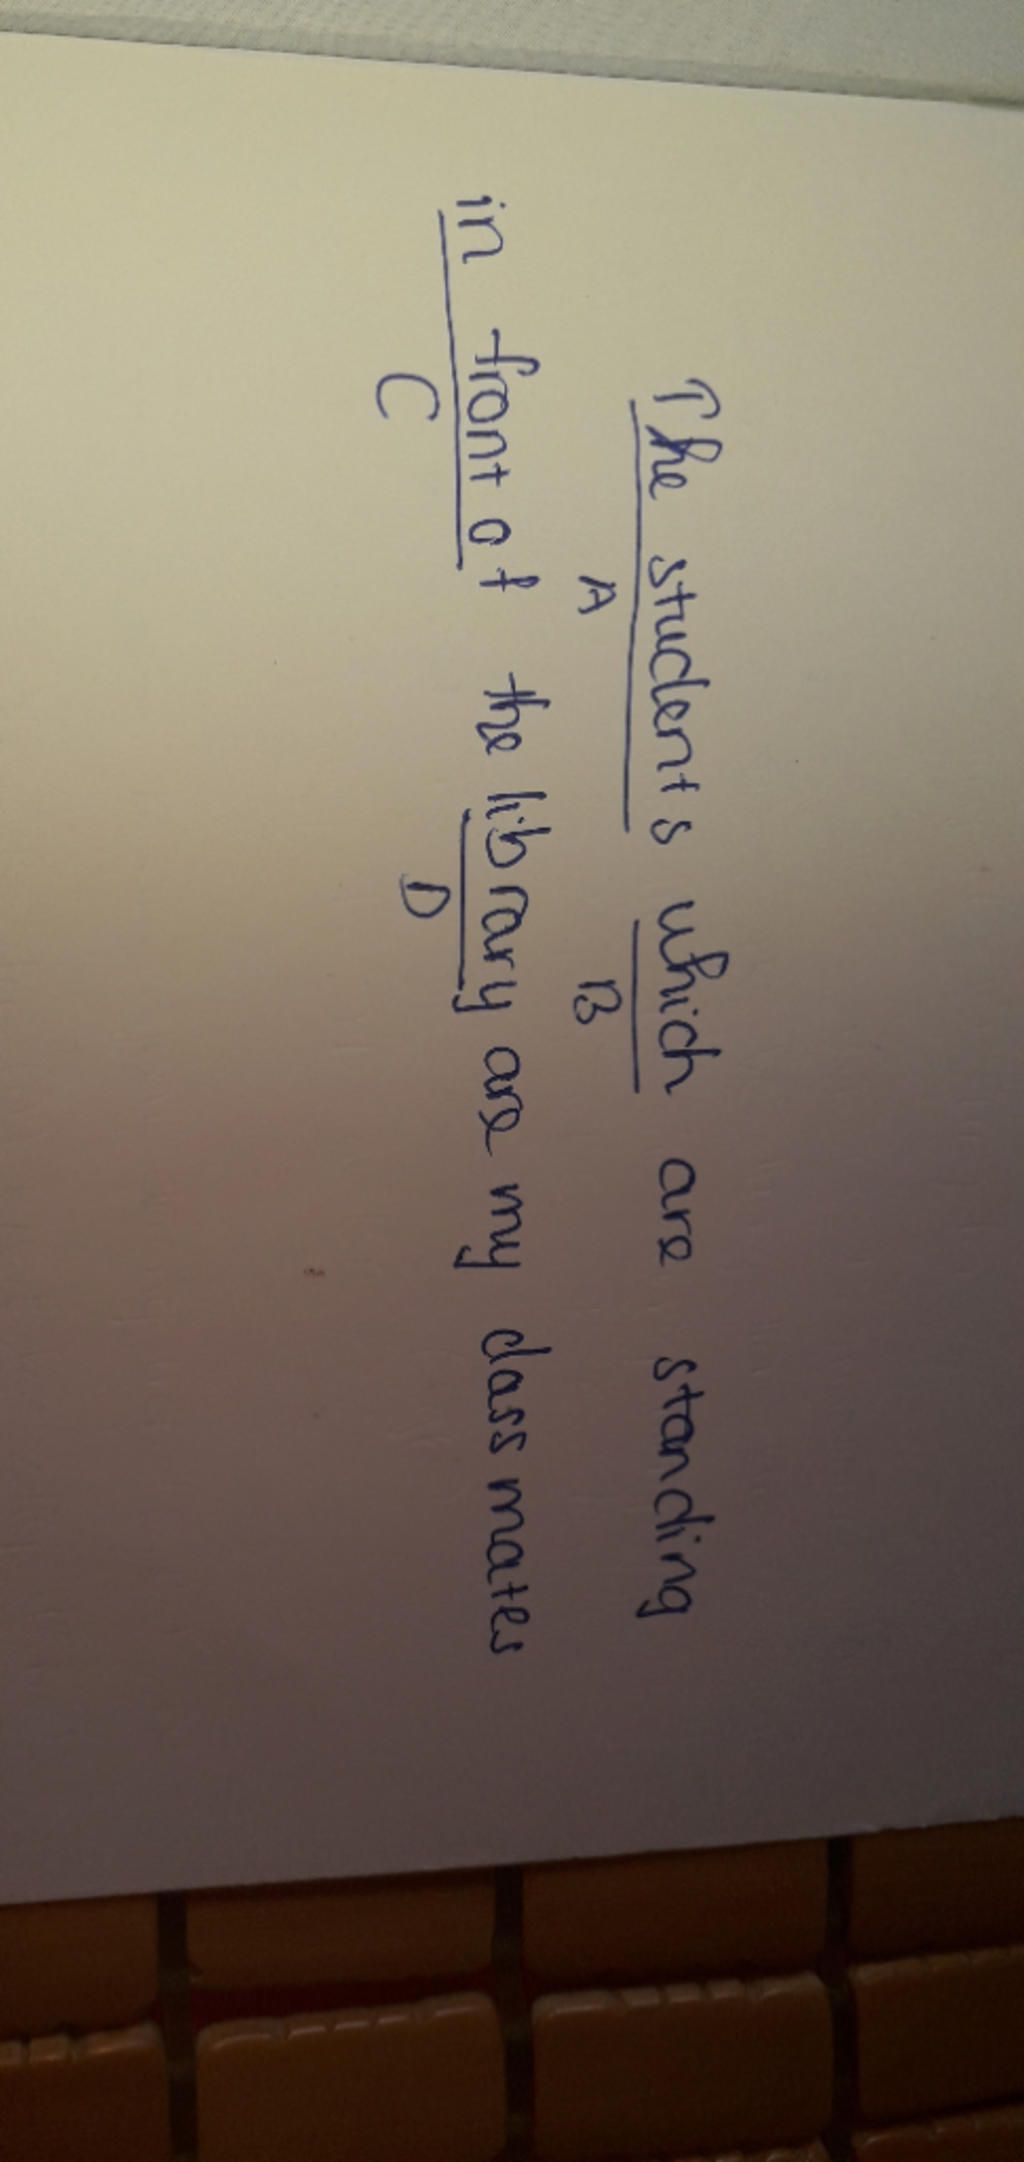 The students which are standing
A B
in front of the library are my classmates
C D